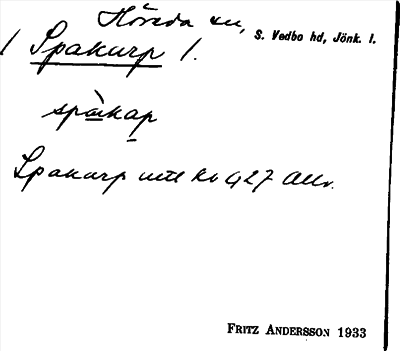 Hövreda sn, S. Vedbo hd, Jönk. l.
/ Spakurp /.
spåkap
Spakurp utet kv 427 Allv.
FRITZ ANDERSSON 1933